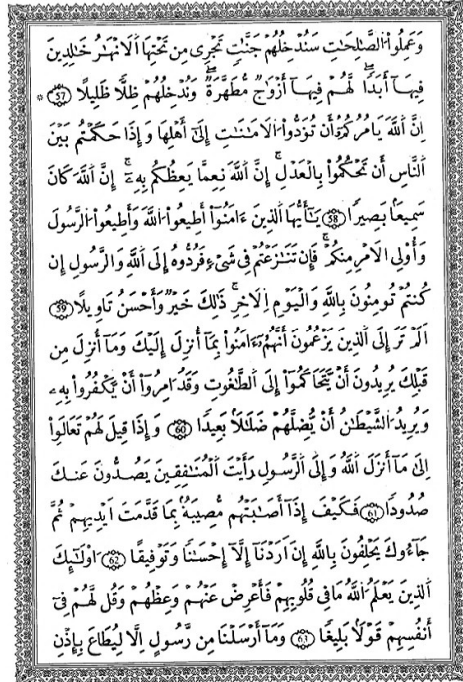 وَعَمِلُوا۟ الصَّٰلِحَٰتِ سَنُدْخِلُهُمْ جَنَّٰتٍ تَجْرِى مِن تَحْتِهَا اَلَانْهَٰرُ خَٰلِدِينَ
فِيهَآ أَبَدًا لَّهُمْ فِيهَآ أَزْوَٰجٌ مُّطَهَّرَةٌ وَنُدْخِلُهُمْ ظِلًّا ظَلِيلًا 57 *
اِنَّ اَللَّهَ يَامُرُكُمُۥٓ أَن تُوَدُّوا۟ اُلَامَٰنَٰتِ إِلَىٰٓ أَهْلِهَا وَإِذَا حَكَمْتُم بَيْنَ
اَلنَّاسِ أَن تَحْكُمُوا۟ بِالْعَدْلِ إِنَّ اَللَّهَ نِعِمَّا يَعِظُكُم بِهِۦٓ إِنَّ اَللَّهَ كَانَ
سَمِيعًۢا بَصِيرًا 58 يَٰٓأَيُّهَا اَلذِينَ ءَامَنُوٓا۟ أَطِيعُوا۟ اُللَّهَ وَأَطِيعُوا۟ اُلرَّسُولَ
وَأُوْلِى اِلَامْرِ مِنكُمْ فَإِن تَنَٰزَعْتُمْ فِى شَےْءٍ فَرُدُّوهُ إِلَى اَللَّهِ وَالرَّسُولِ إِن
كُنتُمْ تُومِنُونَ بِاللَّهِ وَالْيَوْمِ اِلَاخِرِ ذَٰلِكَ خَيْرٌ وَأَحْسَنُ تَاوِيلًا 59
اَلَمْ تَرَ إِلَى اَلذِينَ يَزْعُمُونَ أَنَّهُمُۥٓ ءَامَنُوا۟ بِمَآ أُنزِلَ إِلَيْكَ وَمَآ أُنزِلَ مِن
قَبْلِكَ يُرِيدُونَ أَنْ يَّتَحَاكَمُوٓا۟ إِلَى اَلطَّٰغُوتِ وَقَدُ ا۟مِرُوٓا۟ أَنْ يَّكْفُرُوا۟ بِهِۦ
وَيُرِيدُ اُلشَّيْطَٰنُ أَنْ يُّضِلَّهُمْ ضَلَٰلًۢا بَعِيدًا 60 وَإِذَا قِيلَ لَهُمْ تَعَالَوِا۟
اِلَىٰ مَآ أَنزَلَ اَللَّهُ وَإِلَى اَلرَّسُولِ رَأَيْتَ اَلْمُنَٰفِقِينَ يَصُدُّونَ عَنكَ
صُدُودًا 61 فَكَيْفَ إِذَآ أَصَٰبَتْهُم مُّصِيبَةٌۢ بِمَا قَدَّمَتَ اَيْدِيهِمْ ثُمَّ
جَآءُوكَ يَحْلِفُونَ بِاللَّهِ إِنَ اَرَدْنَآ إِلَّآ إِحْسَٰنًا وَتَوْفِيقًا 62 اُوْلَٰٓئِكَ
اَلذِينَ يَعْلَمُ اُللَّهُ مَا فِى قُلُوبِهِمْ فَأَعْرِضْ عَنْهُمْ وَعِظْهُمْ وَقُل لَّهُمْ فِىٓ
أَنفُسِهِمْ قَوْلًۢا بَلِيغًا 63 وَمَآ أَرْسَلْنَا مِن رَّسُولٍ اِلَّا لِيُطَاعَ بِإِذْنِ